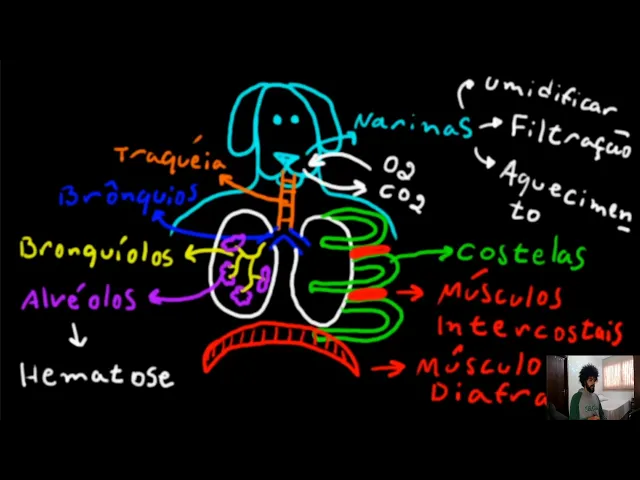 umidificar
Narinas
Filtração
Traquéia
O2
CO2
Aquecimen
to
Brônquios
Bronquíolos
Costelas
Alvéolos
Músculos
Intercostais
Hematose
Músculo